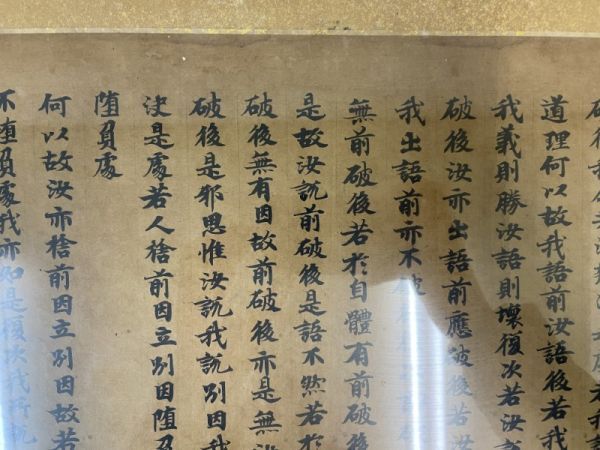 道理何以故我語前汝語後若我
我義則勝汝語則壞復次若汝
破後汝亦出語前應破後若汝
我出語前亦不破
無前破後若於自體有前破後
是故汝說前破後是語不然若於
破後無有因故前破後亦是無
破後是邪思惟汝說我說別因我
決是處若人捨前因立別因墮負
墮負處
何以故汝亦捨前因立別因故若
不墮負處我亦如是復次我所說